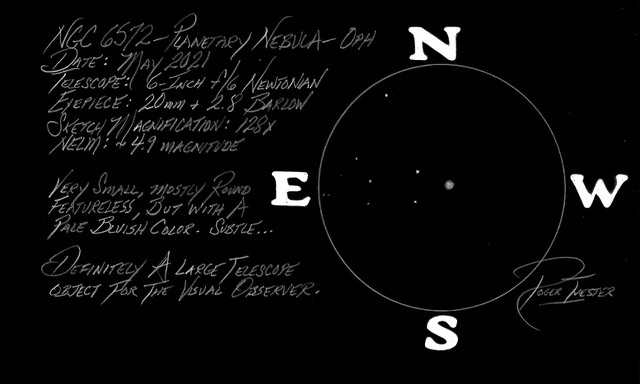 NGC 6572-Planetary Nebula- Oph
Date: May 2021
Telescope: 6-Inch f/6 Newtonian
Eyepiece: 20mm + 2.8 Barlow
Sketch Magnification: 128x
NELM: ~ 4.9 magnitude
Very Small, mostly Round
Featureless, But with A
Pale Bluish Color. Subtle...
Definitely A Large Telescope
object For The Visual Observer.
N
E
W
S
Roger Ivester